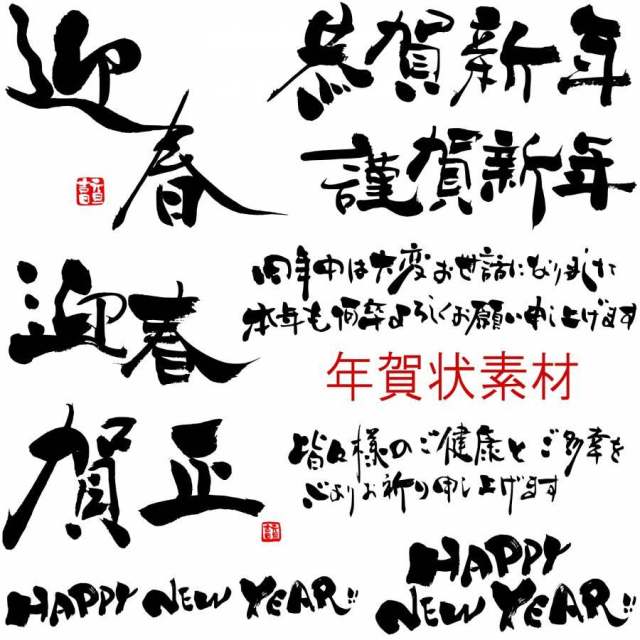 迎春
恭賀新年
謹賀新年
迎春
旧年中は大変お世話になりました
本年も何卒よろしくお願い申し上げます
年賀状素材
賀正
皆々様のご健康とご多幸を
心よりお祈り申し上げます
HAPPY NEW YEAR!!
HAPPY
NEW YEAR!!